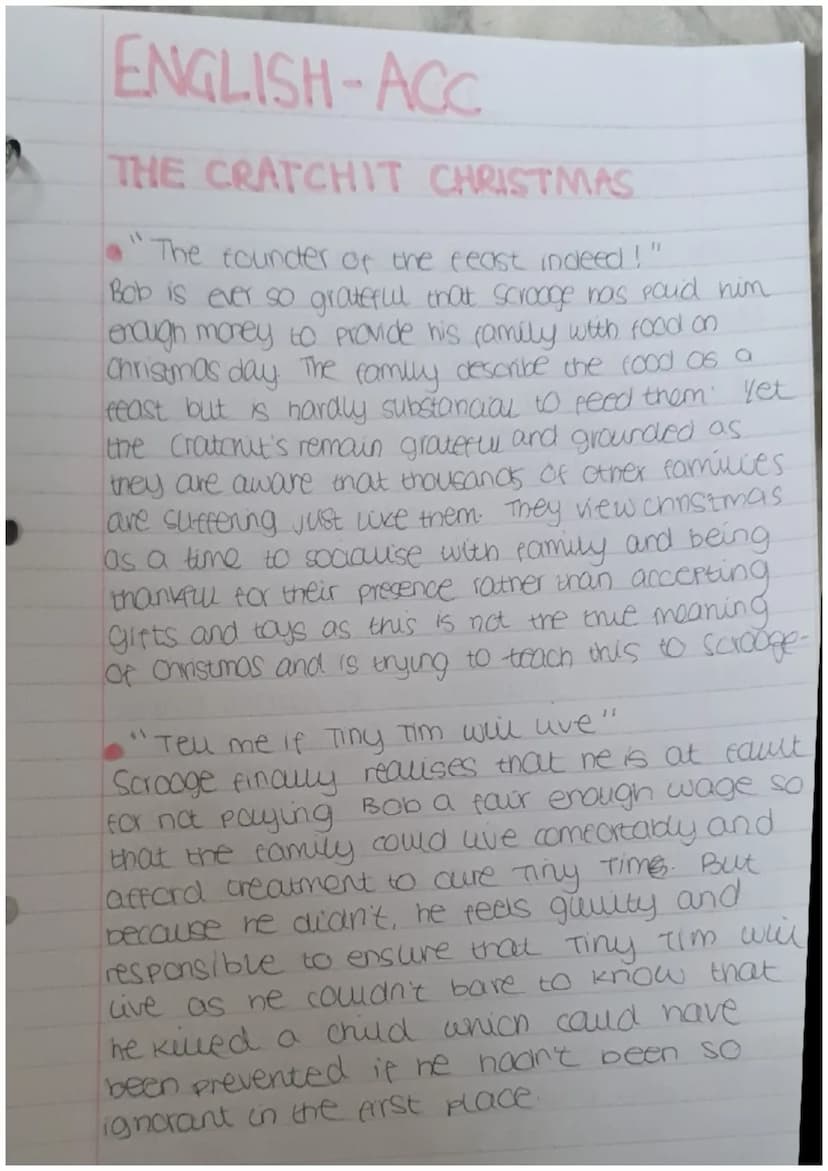 ENGLISH - ACC
THE CRATCHIT CHRISTMAS
• "The founder of the feast indeed!"
Bob is ever so grateful that Scrooge has paid him
enough money to provide his family with food on
Christmas day. The family describe the food as a
feast but is hardly substancial to feed them. Yet
the Cratchit's remain grateful and grounded as
they are aware that thousands of other families
are suffering just like them. They view christmas
as a time to socialise with family and being
thankful for their presence rather than accepting
gifts and toys as this is not the true meaning
of Christmas and is trying to teach this to scrooge.
• "Tell me if Tiny Tim will live"
Scrooge finally realises that he is at fault
for not paying Bob a fair enough wage so
that the family could live comfortably and
afford treatment to cure Tiny Tim. But
because he didn't, he feels guilty and
responsible to ensure that Tiny Tim will
live as he couldn't bare to know that
he killed a child which could have
been prevented if he hadn't been so
ignorant in the first place.